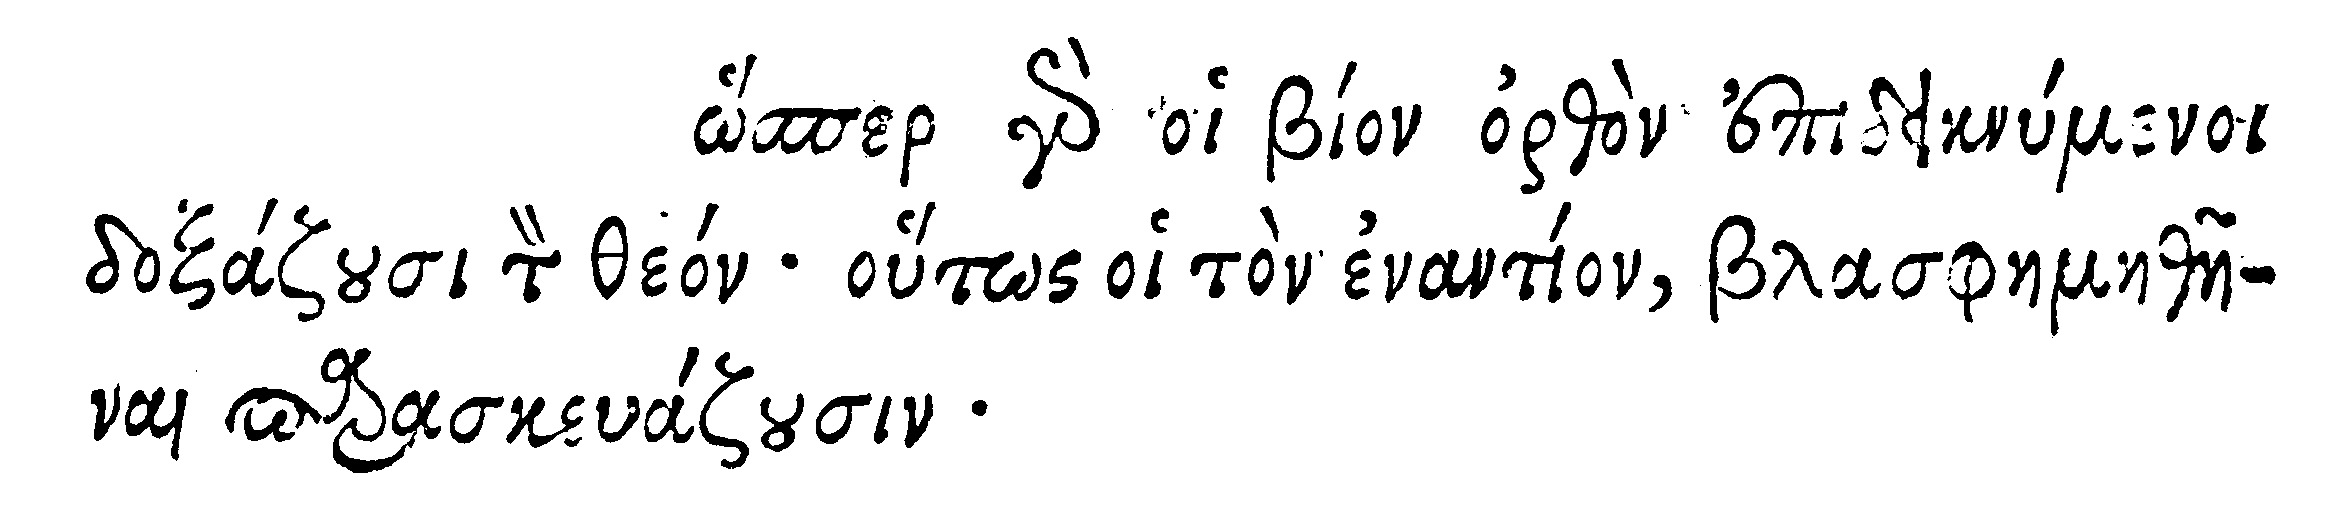 ὥσπερ γὰρ οἱ βίον ὀρθὸν ἐπιδεικνύμενοι
δοξάζουσι τὸν θεόν· οὕτως οἱ τὸν ἐναντίον, βλασφημηθῆ-
ναι παρασκευάζουσιν·